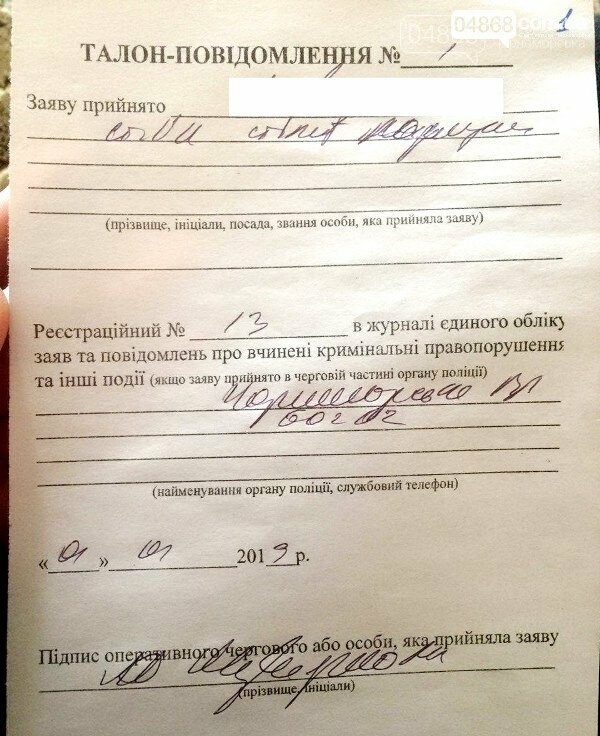 04868.com.ua
1
ТАЛОН-ПОВІДОМЛЕННЯ № 1
Заяву прийнято
(прізвище, ініціали, посада, звання особи, яка прийняла заяву)
Реєстраційний № 13 в журналі єдиного обліку
заяв та повідомлень про вчинені кримінальні правопорушення
та інші події (якщо заяву прийнято в черговій частині органу поліції)
Чорноморське ВП
60202
(найменування органу поліції, службовий телефон)
«01» 01 2019 р.
Підпис оперативного чергового або особи, яка прийняла заяву
(прізвище, ініціали)